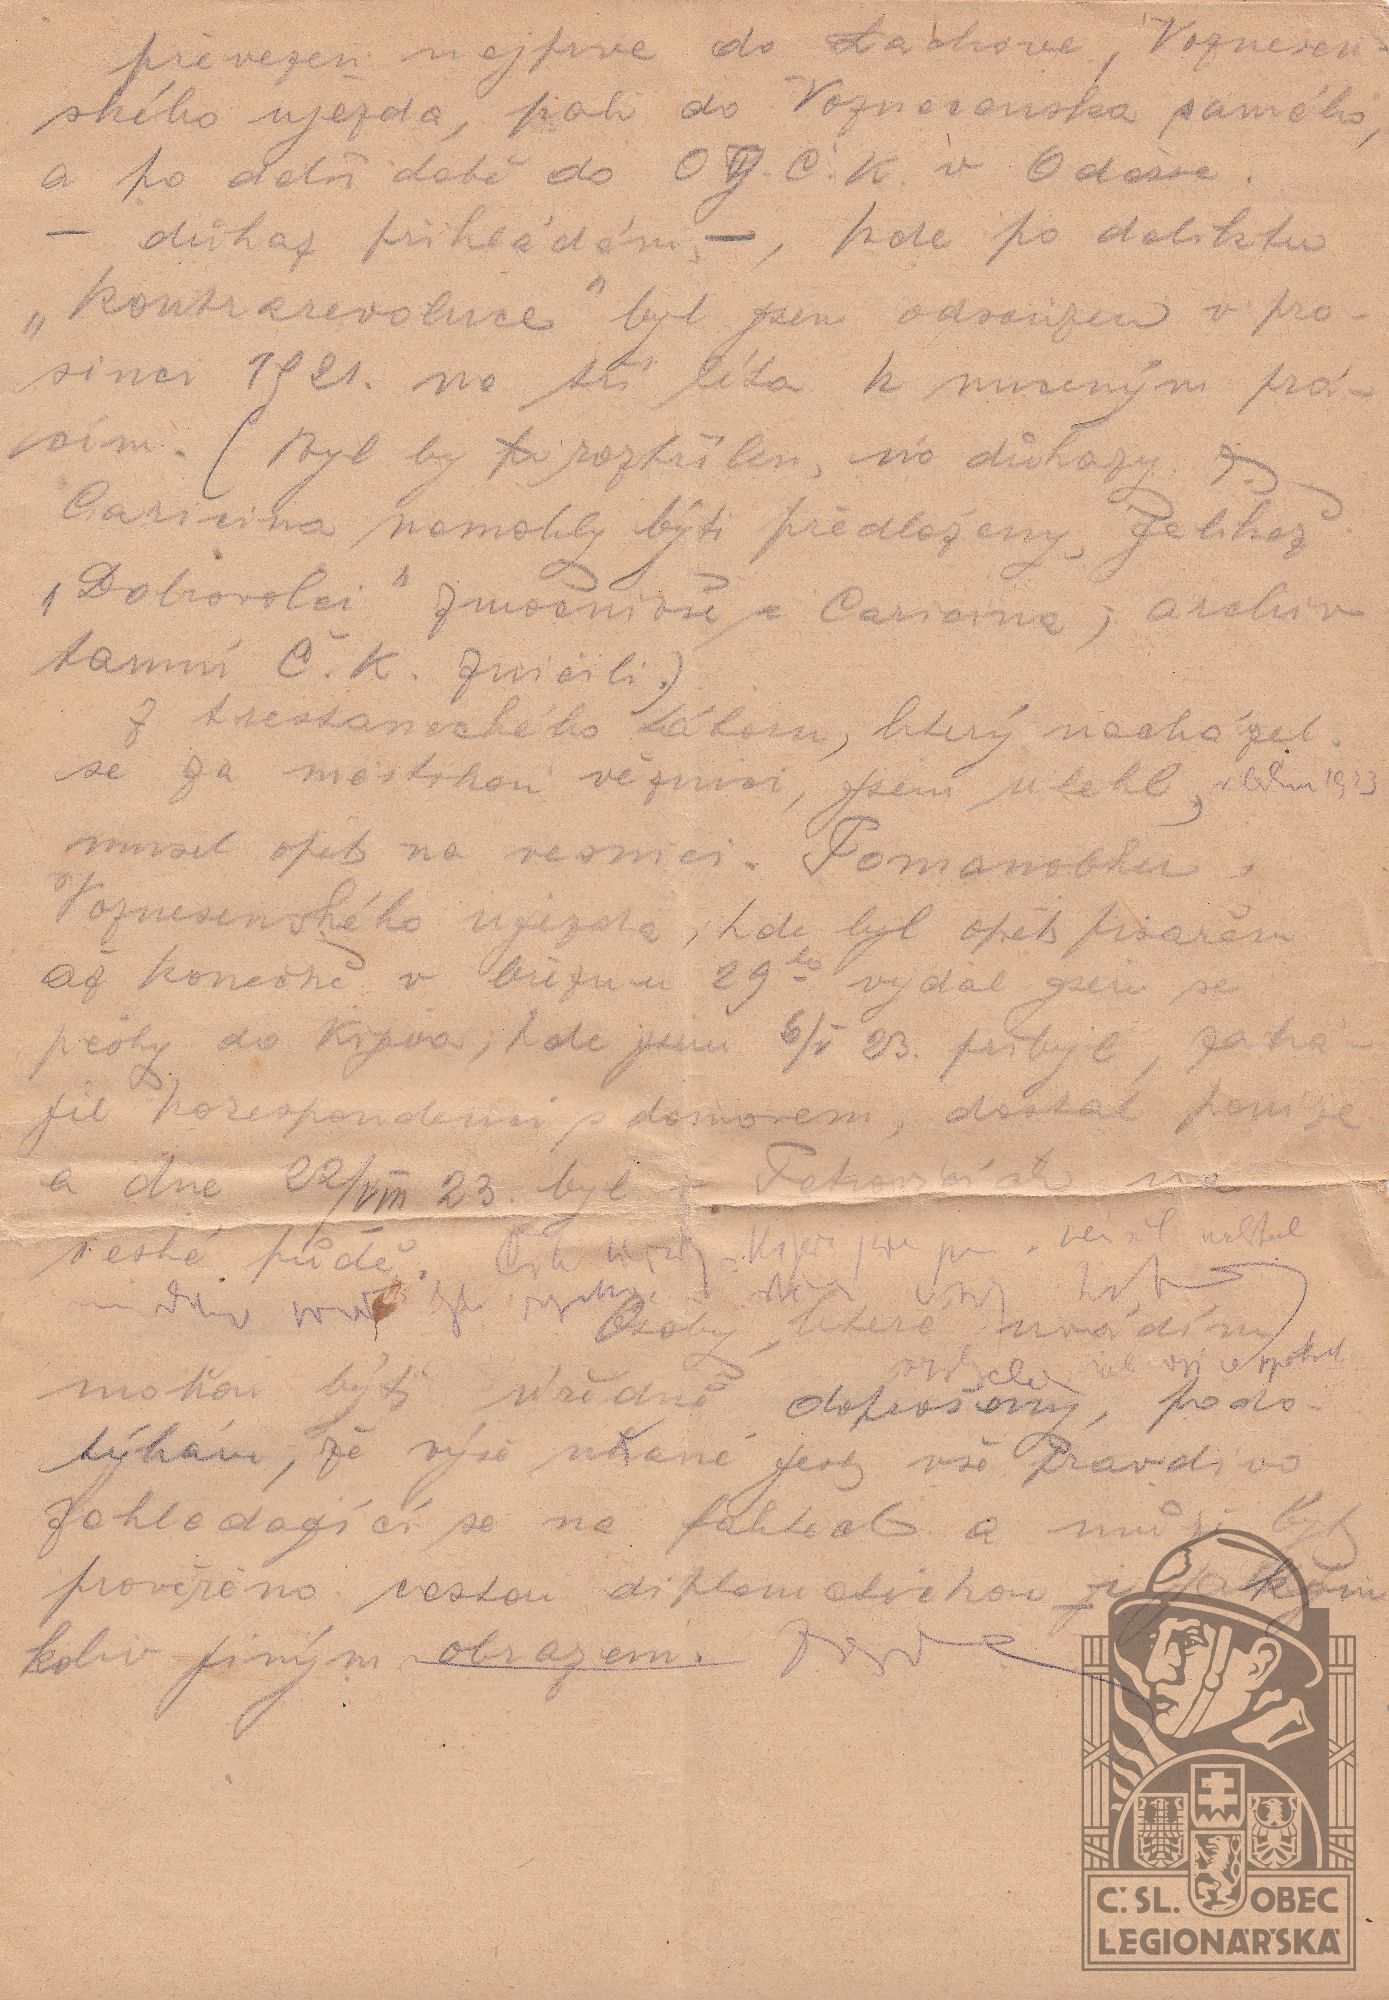 převezen nejprve do Lachova, Voznesen-
ského ujezda, pak do Voznesenska samého,
a po delší době do O.G.Č.K. v Odesse.
— důkaz přikládám, —, kde po deliktu
„kontrarevoluce" byl jsem odsouzen v pro-
sinci 1921. na tři léta k nuceným prá-
cím. (Byl by rozstřílen, no důkazy z
Caricina nemohly býti předloženy, jelikož
„Dobrovolci" zmocnivše se Caricina, archiv
tamní Č.K. zničili.)
Z trestaneckého táboru, který nacházel
se za městskou věznicí, jsem utekl, v lednu 1923
musel opět na vesnici. Romanovku,
Voznesenského ujezda, kde byl opět písařem
až konečně v březnu 29ho vydal jsem se
pěšky do Kijeva, kde jsem 6/V 23. přibyl, zahá-
jil korespondenci s domovem, dostal peníze
a dne 22/VIII 23 byl v Petrovicích na
české půdě.
Osoby, které uvádím
mohou býti úředně doprošeny, podo-
týkám, že výše udané jest vše pravdivo
zakládající se na faktech a může být
prověřeno cestou diplomatickou ji jakým
koliv jiným obrazem.
Č. SL. OBEC
LEGIONÁŘSKÁ